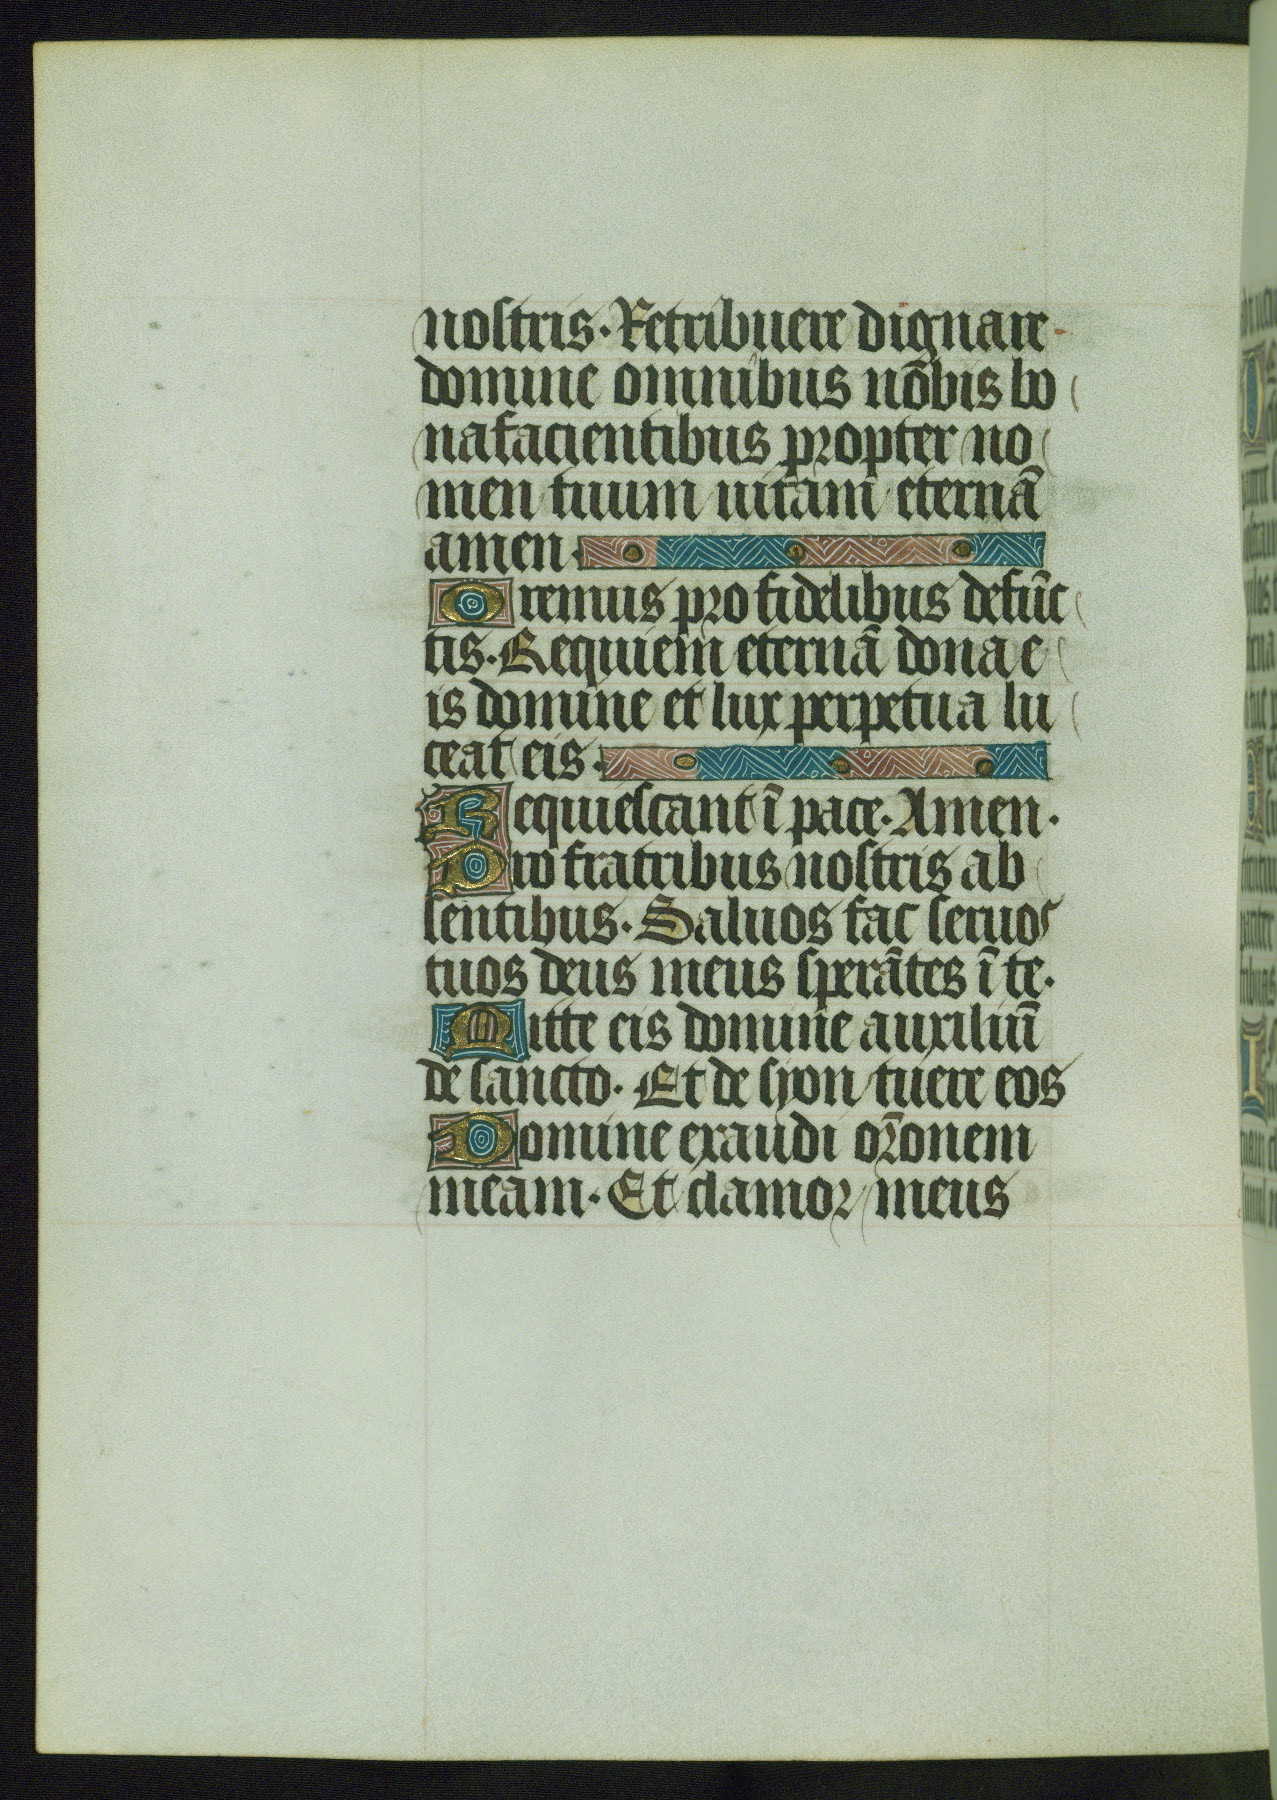 nostris. Retribuere dignare
domine omnibus nōbis bo
nafacientibus propter no
men tuum uitam eternā
amen.
Oremus pro fidelibus defūc
tis. Requiem eternā dona e
is domine et lux perpetua lu
ceat eis.
Requiescant ī pace. Amen.
Pro fratribus nostris ab
sentibus. Saluos fac seruos
tuos deus meus sperātes ī te.
Mitte eis domine auxiliū
de sancto. Et de syon tuere eos
Domine exaudi or̄onem
meam. Et clamor meus